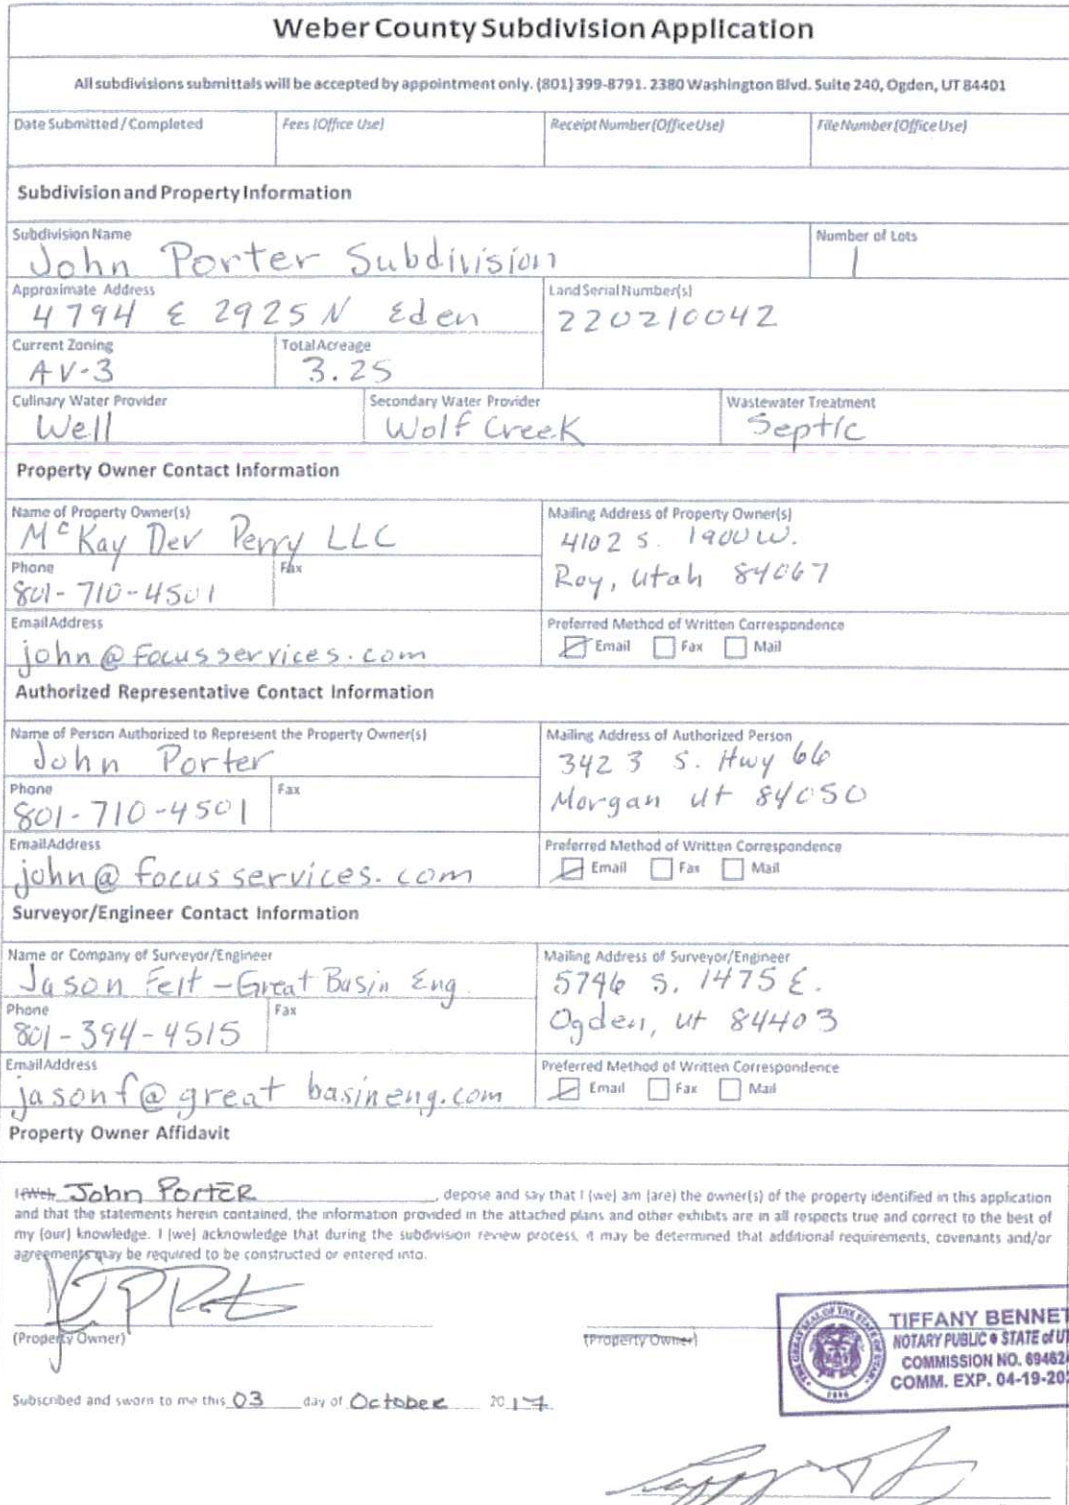 Weber County Subdivision Application
All subdivisions submittals will be accepted by appointment only. (801) 399-8791. 2380 Washington Blvd. Suite 240, Ogden, UT 84401
Date Submitted / Completed
Fees (Office Use)
Receipt Number (Office Use)
File Number (Office Use)
Subdivision and Property Information
Subdivision Name
John Porter Subdivision
Number of Lots
1
Approximate Address
4794 E 2925 N Eden
Land Serial Number(s)
220210042
Current Zoning
AV-3
Total Acreage
3.25
Culinary Water Provider
Well
Secondary Water Provider
Wolf Creek
Wastewater Treatment
Septic
Property Owner Contact Information
Name of Property Owner(s)
McKay Dev Perry LLC
Mailing Address of Property Owner(s)
4102 S. 1900 W.
Roy, Utah 84067
Phone
801-710-4501
Fax
Email Address
john@focusservices.com
Preferred Method of Written Correspondence
Email Fax Mail
Authorized Representative Contact Information
Name of Person Authorized to Represent the Property Owner(s)
John Porter
Mailing Address of Authorized Person
3423 S. Hwy 66
Morgan Ut 84050
Phone
801-710-4501
Fax
Email Address
john@focusservices.com
Preferred Method of Written Correspondence
Email Fax Mail
Surveyor/Engineer Contact Information
Name or Company of Surveyor/Engineer
Jason Felt - Great Basin Eng
Mailing Address of Surveyor/Engineer
5746 S. 1475 E.
Ogden, Ut 84403
Phone
801-394-4515
Fax
Email Address
jasonf@greatbasineng.com
Preferred Method of Written Correspondence
Email Fax Mail
Property Owner Affidavit
I (We), John Porter, depose and say that I (we) am (are) the owner(s) of the property identified in this application
and that the statements herein contained, the information provided in the attached plans and other exhibits are in all respects true and correct to the best of
my (our) knowledge. I (we) acknowledge that during the subdivision review process, it may be determined that additional requirements, covenants and/or
agreements may be required to be constructed or entered into.
(Property Owner)
(Property Owner)
THE GREAT SEAL OF THE STATE OF UTAH
1896
TIFFANY BENNET
NOTARY PUBLIC • STATE of UT
COMMISSION NO. 69462
COMM. EXP. 04-19-20
Subscribed and sworn to me this 03 day of October 20 17